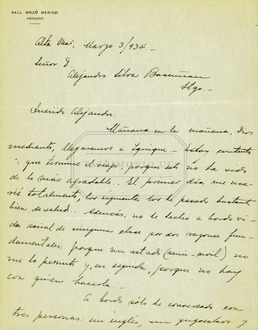 RAUL MOZÓ MERINO
ABOGADO
Alta Mar, Marzo 3/934 -
Señor D.
Alejandro Silva Bascuñan
Stgo -
Querido Alejandro:
Mañana en la mañana, Dios
mediante, llegaremos a Iquique - Estoy contento
que termine el viaje, porque este no ha sido
de lo más agradable. El primer día me ma-
reé totalmente, los siguientes los he pasado bastante
bien de salud. Además, no he hecho a bordo vi-
da social de ninguna clase por dos razones fun-
damentales: porque mi estado (semi-) no
me lo permite y, en segunda, porque no hay
con quien hacerla.
A bordo sólo he conversado con
tres personas, un inglés, un yugoeslavo y